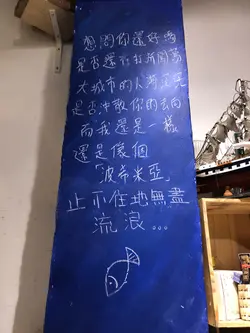 想問你還好嗎
是否還在找所
大城市的人海
是否沖散你的去向
而我還是一樣
還是像個
「波希米亞」
止不住地無盡
流浪...